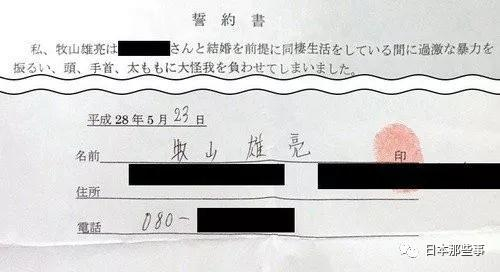 誓約書
私、牧山雄亮は さんと結婚を前提に同棲生活をしている間に過激な暴力を
振るい、頭、手首、太ももに大怪我を負わせてしまいました。
平成28年5月23日
名前 牧山 雄亮 印
住所
電話 080-
日本那些事